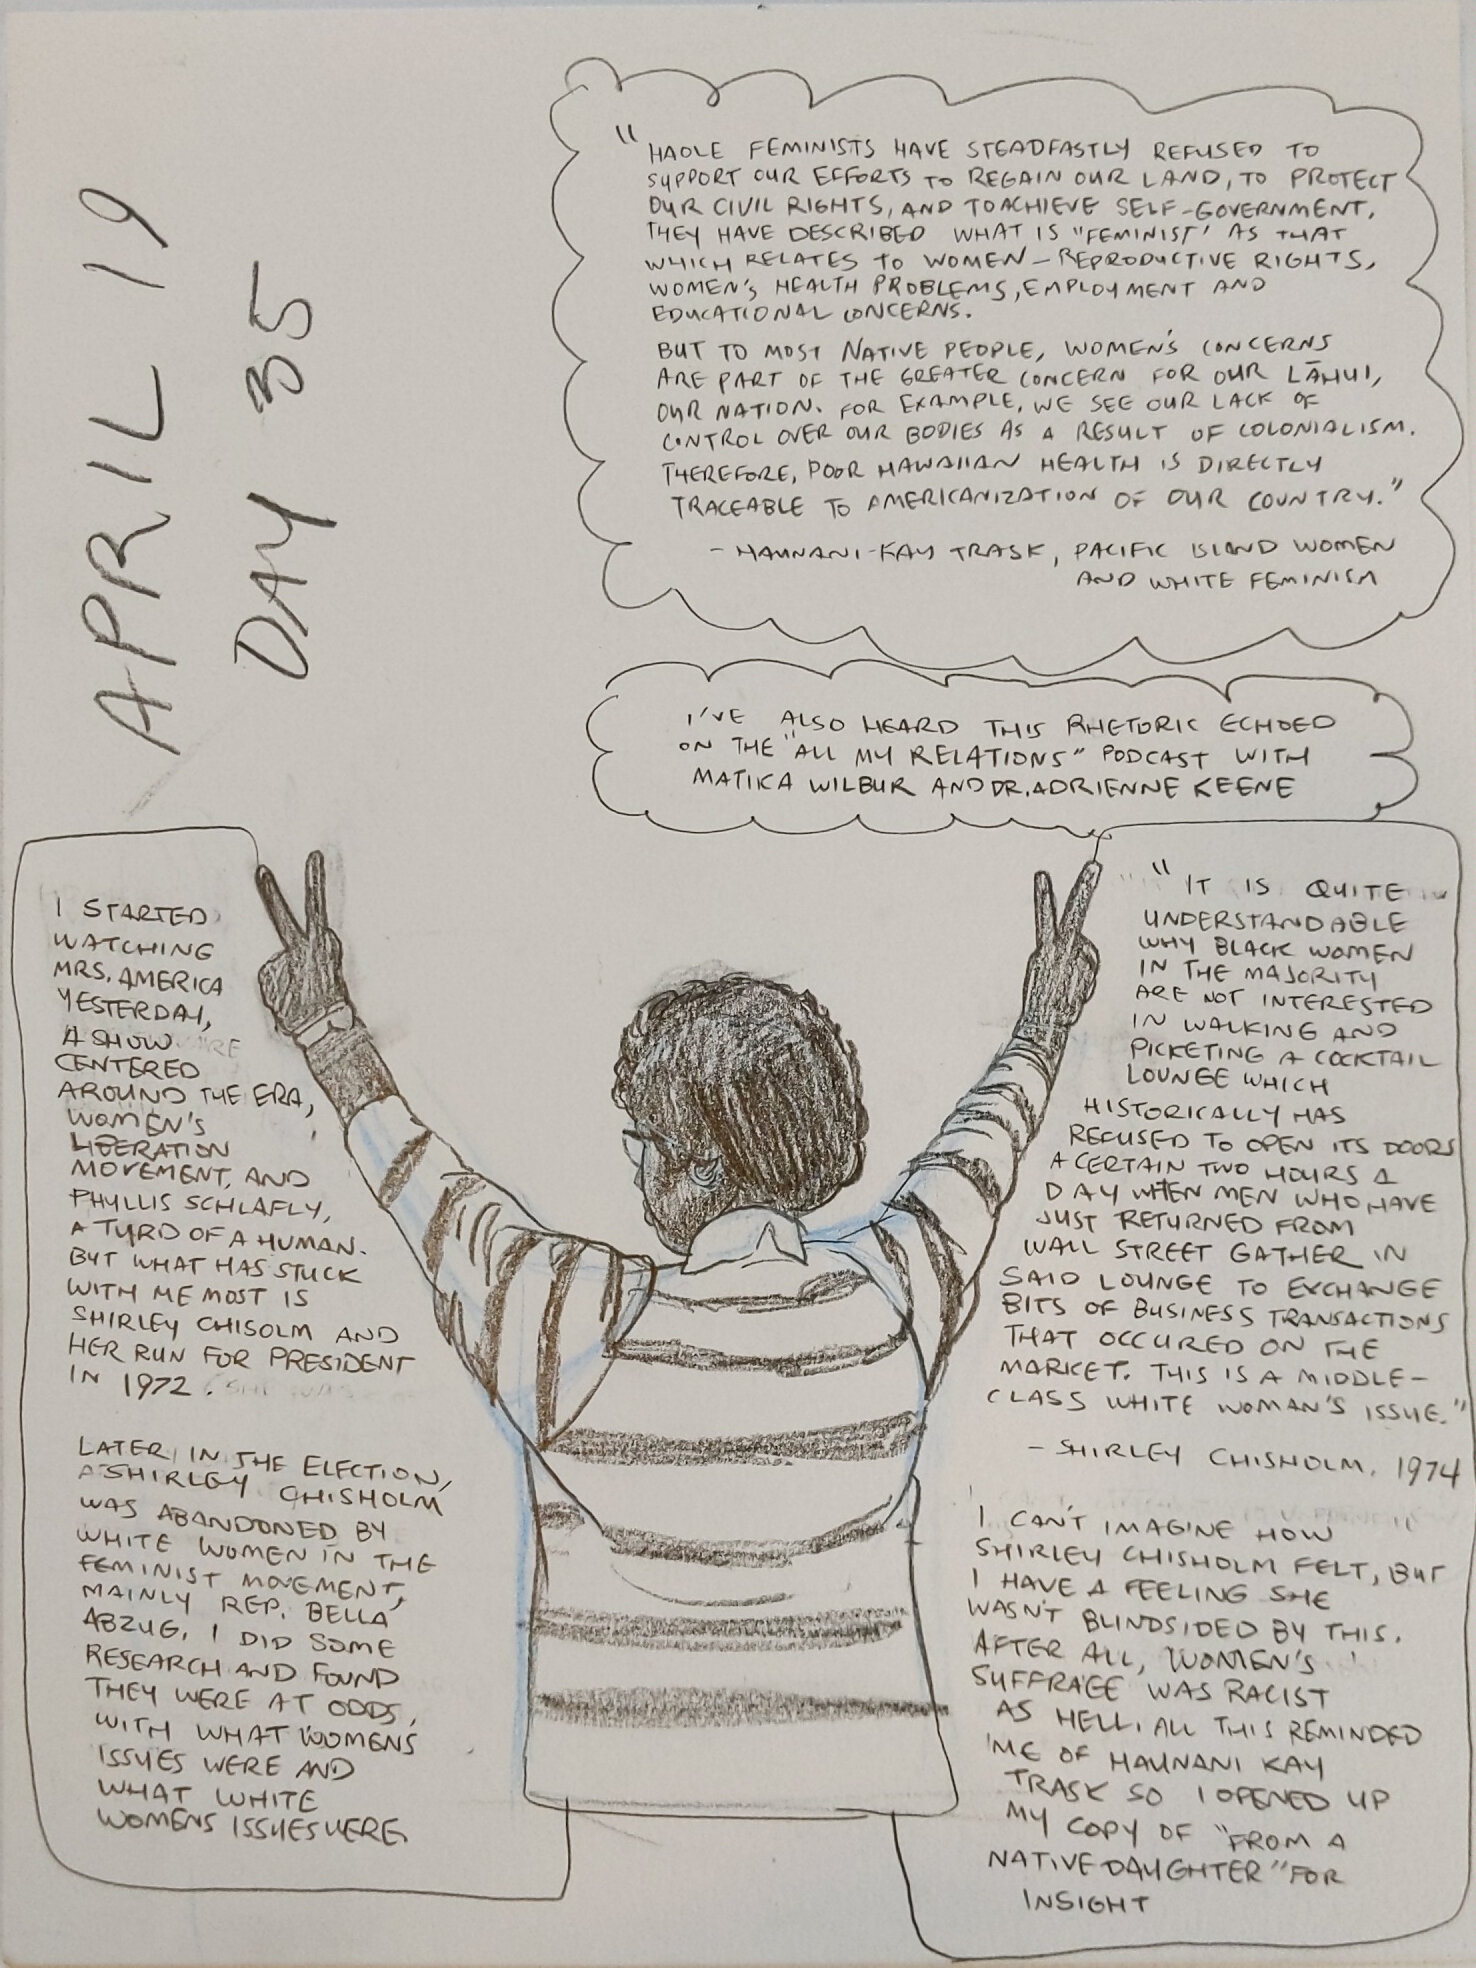 APRIL 19
DAY 35
"HAOLE FEMINISTS HAVE STEADFASTLY REFUSED TO
SUPPORT OUR EFFORTS TO REGAIN OUR LAND, TO PROTECT
OUR CIVIL RIGHTS, AND TO ACHIEVE SELF-GOVERNMENT.
THEY HAVE DESCRIBED WHAT IS "FEMINIST' AS THAT
WHICH RELATES TO WOMEN - REPRODUCTIVE RIGHTS,
WOMEN'S HEALTH PROBLEMS, EMPLOYMENT AND
EDUCATIONAL CONCERNS.
BUT TO MOST NATIVE PEOPLE, WOMEN'S CONCERNS
ARE PART OF THE GREATER CONCERN FOR OUR LĀHUI,
OUR NATION. FOR EXAMPLE, WE SEE OUR LACK OF
CONTROL OVER OUR BODIES AS A RESULT OF COLONIALISM.
THEREFORE, POOR HAWAIIAN HEALTH IS DIRECTLY
TRACEABLE TO AMERICANIZATION OF OUR COUNTRY."
- HAUNANI-KAY TRASK, PACIFIC ISLAND WOMEN
AND WHITE FEMINISM
I'VE ALSO HEARD THIS RHETORIC ECHOED
ON THE "ALL MY RELATIONS" PODCAST WITH
MATIKA WILBUR AND DR. ADRIENNE KEENE
I STARTED
WATCHING
MRS. AMERICA
YESTERDAY,
A SHOW
CENTERED
AROUND THE ERA,
WOMEN'S
LIBERATION
MOVEMENT, AND
PHYLLIS SCHLAFLY,
A TURD OF A HUMAN.
BUT WHAT HAS STUCK
WITH ME MOST IS
SHIRLEY CHISOLM AND
HER RUN FOR PRESIDENT
IN 1972.
LATER IN THE ELECTION,
SHIRLEY CHISHOLM
WAS ABANDONED BY
WHITE WOMEN IN THE
FEMINIST MOVEMENT,
MAINLY REP. BELLA
ABZUG. I DID SOME
RESEARCH AND FOUND
THEY WERE AT ODDS
WITH WHAT WOMENS
ISSUES WERE AND
WHAT WHITE
WOMENS ISSUES WERE.
"IT IS QUITE
UNDERSTANDABLE
WHY BLACK WOMEN
IN THE MAJORITY
ARE NOT INTERESTED
IN WALKING AND
PICKETING A COCKTAIL
LOUNGE WHICH
HISTORICALLY HAS
REFUSED TO OPEN ITS DOORS
A CERTAIN TWO HOURS A
DAY WHEN MEN WHO HAVE
JUST RETURNED FROM
WALL STREET GATHER IN
SAID LOUNGE TO EXCHANGE
BITS OF BUSINESS TRANSACTIONS
THAT OCCURED ON THE
MARKET. THIS IS A MIDDLE-
CLASS WHITE WOMAN'S ISSUE."
- SHIRLEY CHISHOLM, 1974
I CAN'T IMAGINE HOW
SHIRLEY CHISHOLM FELT, BUT
I HAVE A FEELING SHE
WASN'T BLINDSIDED BY THIS.
AFTER ALL, WOMEN'S
SUFFRAGE WAS RACIST
AS HELL. ALL THIS REMINDED
ME OF HAUNANI KAY
TRASK SO I OPENED UP
MY COPY OF "FROM A
NATIVE DAUGHTER" FOR
INSIGHT